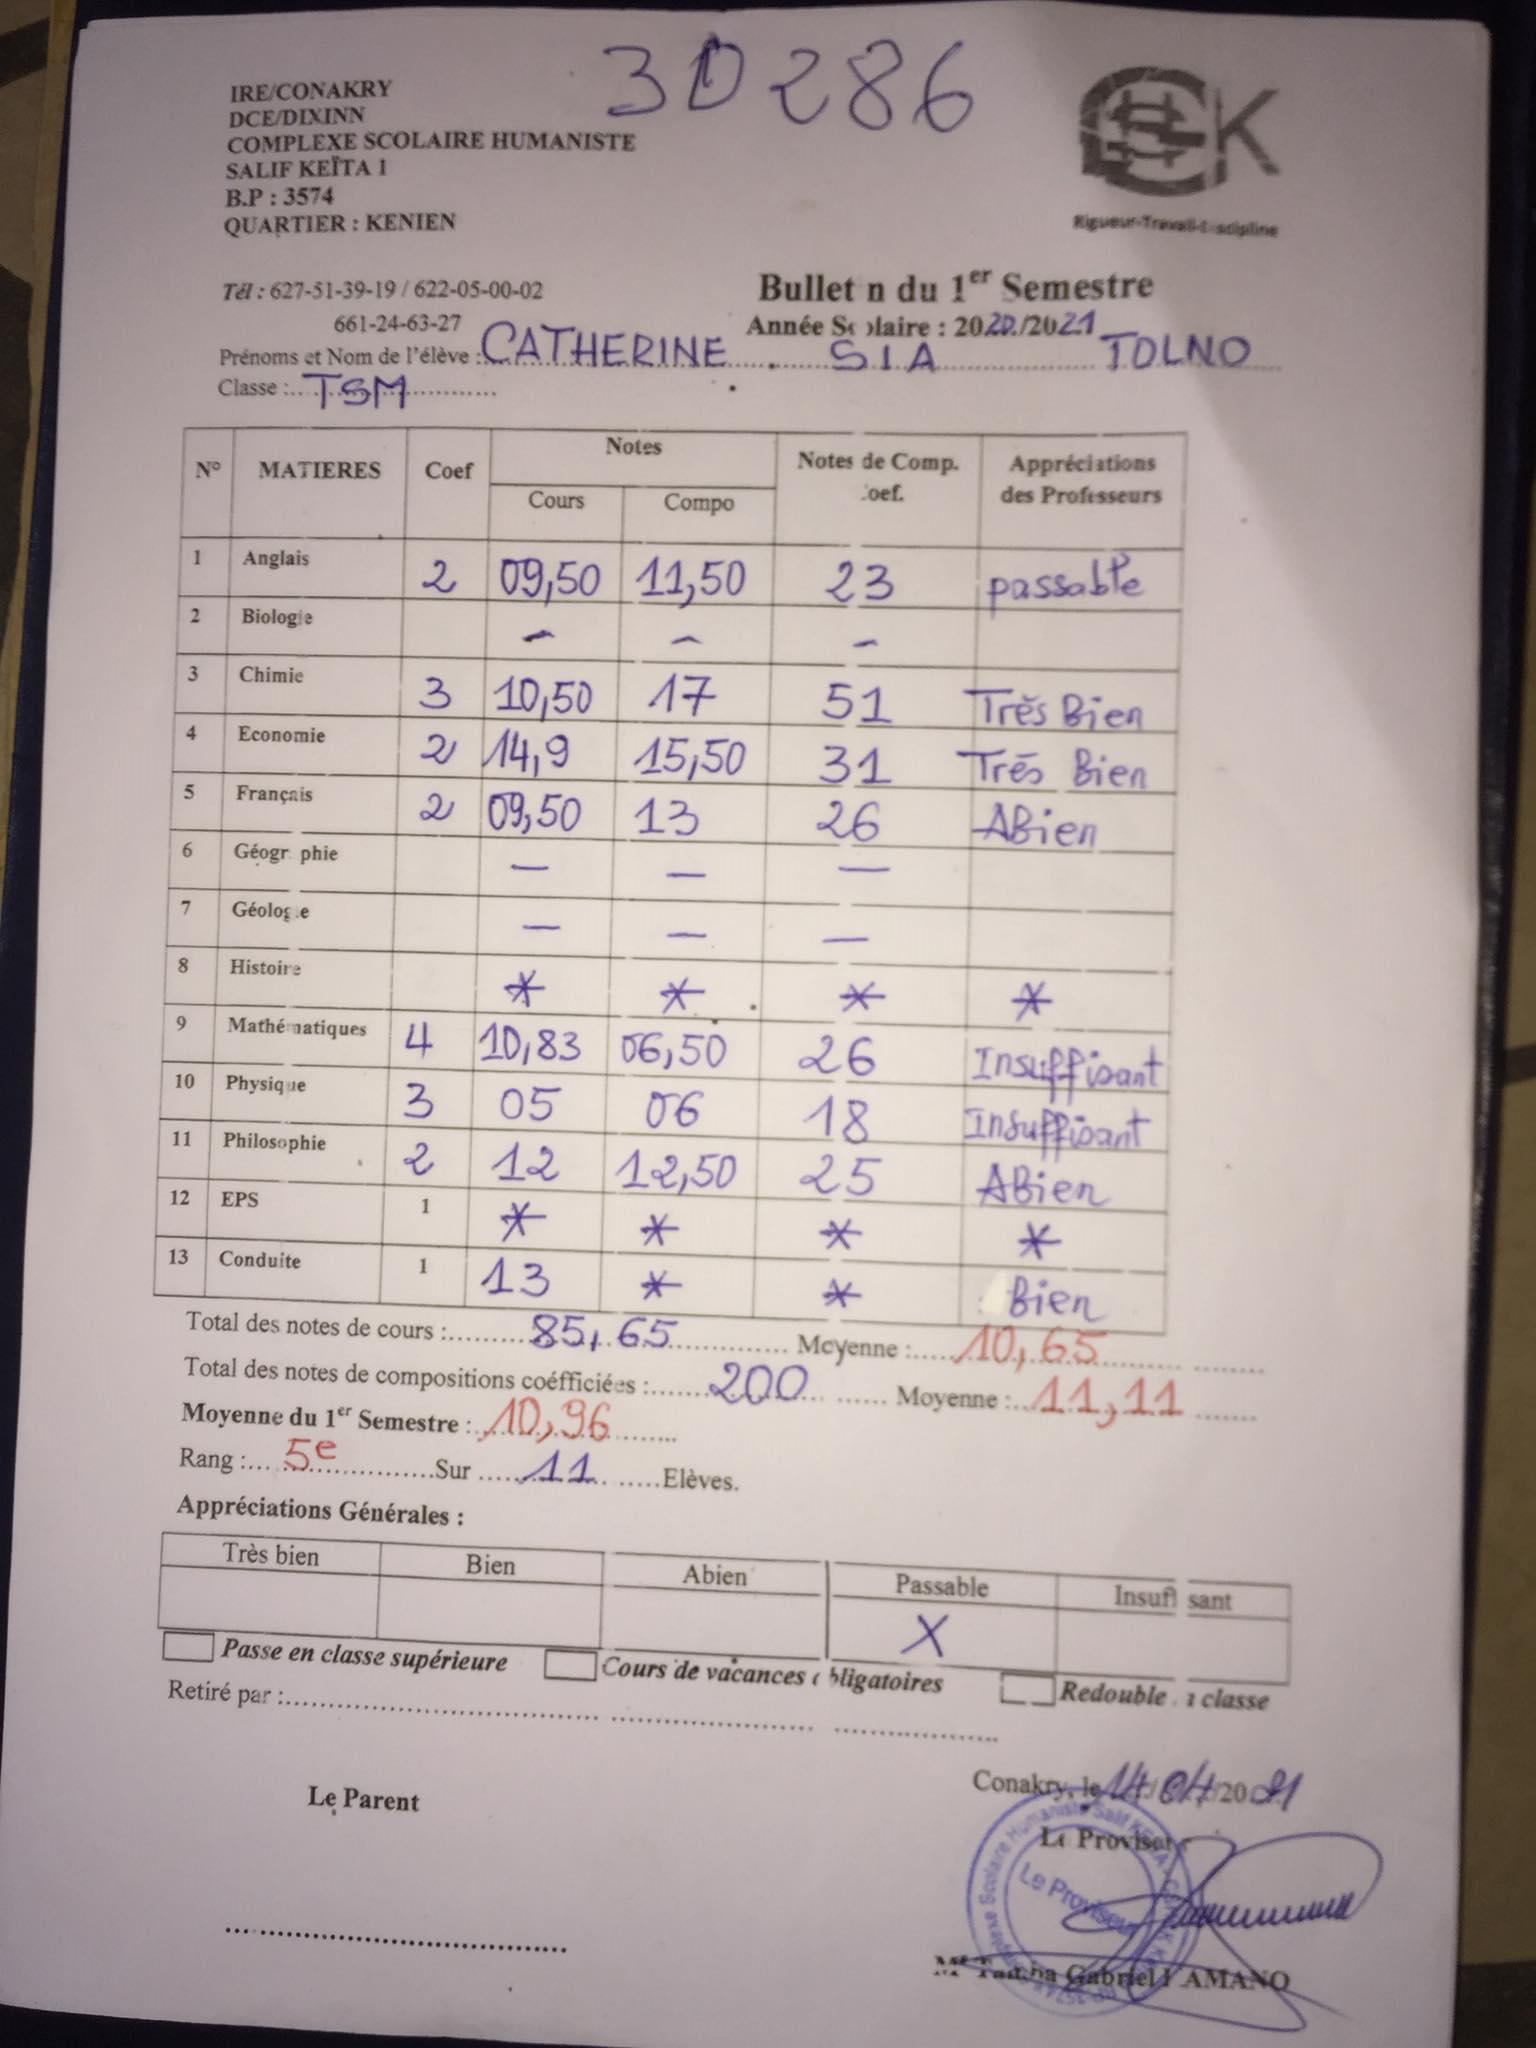 3D286
IRE/CONAKRY
DCE/DIXINN
COMPLEXE SCOLAIRE HUMANISTE
SALIF KEÏTA 1
B.P : 3574
QUARTIER : KENIEN
K
Rigueur-Travail-Discipline
Tél : 627-51-39-19 / 622-05-00-02
661-24-63-27
Bullet n du 1er Semestre
Année Sc laire : 2020./2021
Prénoms et Nom de l'élève : CATHERINE SIA TOLNO
Classe : TSM
N° MATIERES Coef Notes Notes de Comp. Appréciations
oef. des Professeurs
Cours Compo
1 Anglais 2 09,50 11,50 23 passable
2 Biologie - - -
3 Chimie 3 10,50 17 51 Très Bien
4 Economie 2 14,9 15,50 31 Très Bien
5 Français 2 09,50 13 26 ABien
6 Géogr phie - - -
7 Géologie - - -
8 Histoire * * * *
9 Mathématiques 4 10,83 06,50 26 Insuffisant
10 Physique 3 05 06 18 Insuffisant
11 Philosophie 2 12 12,50 25 ABien
12 EPS 1 * * * *
13 Conduite 1 13 * * Bien
Total des notes de cours : 85,65 Moyenne : 10,65
Total des notes de compositions coéfficiées : 200 Moyenne : 11,11
Moyenne du 1er Semestre : 10,96
Rang : 5e Sur 11 Elèves.
Appréciations Générales :
Très bien Bien Abien Passable Insuffi sant
X
Passe en classe supérieure Cours de vacances obligatoires Redouble classe
Retiré par :
Conakry, le 14/04/2021
Le Parent
Le Proviseur
Le Proviseur
Complexe Scolaire Humaniste Salif KEITA
Gabriel KAMANO